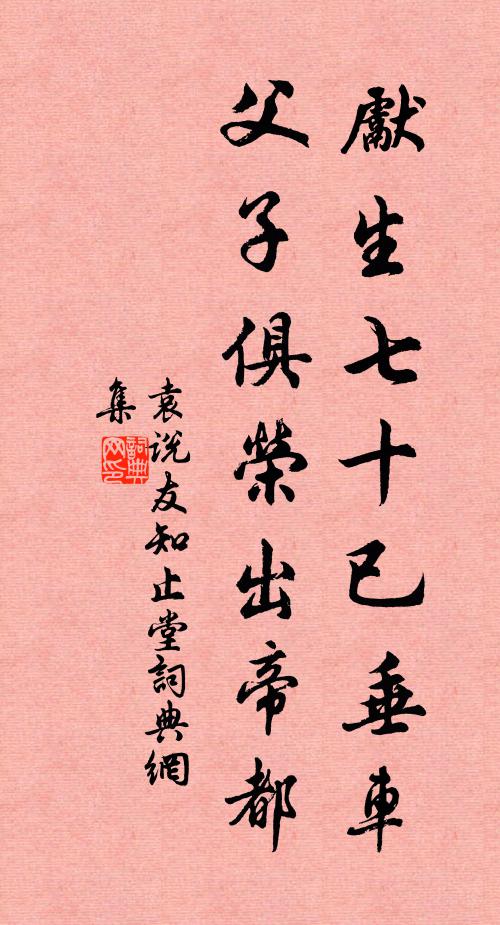 獻生七十已垂車
父子俱榮出帝都
袁說友知止堂詞典網
集
詞典網印